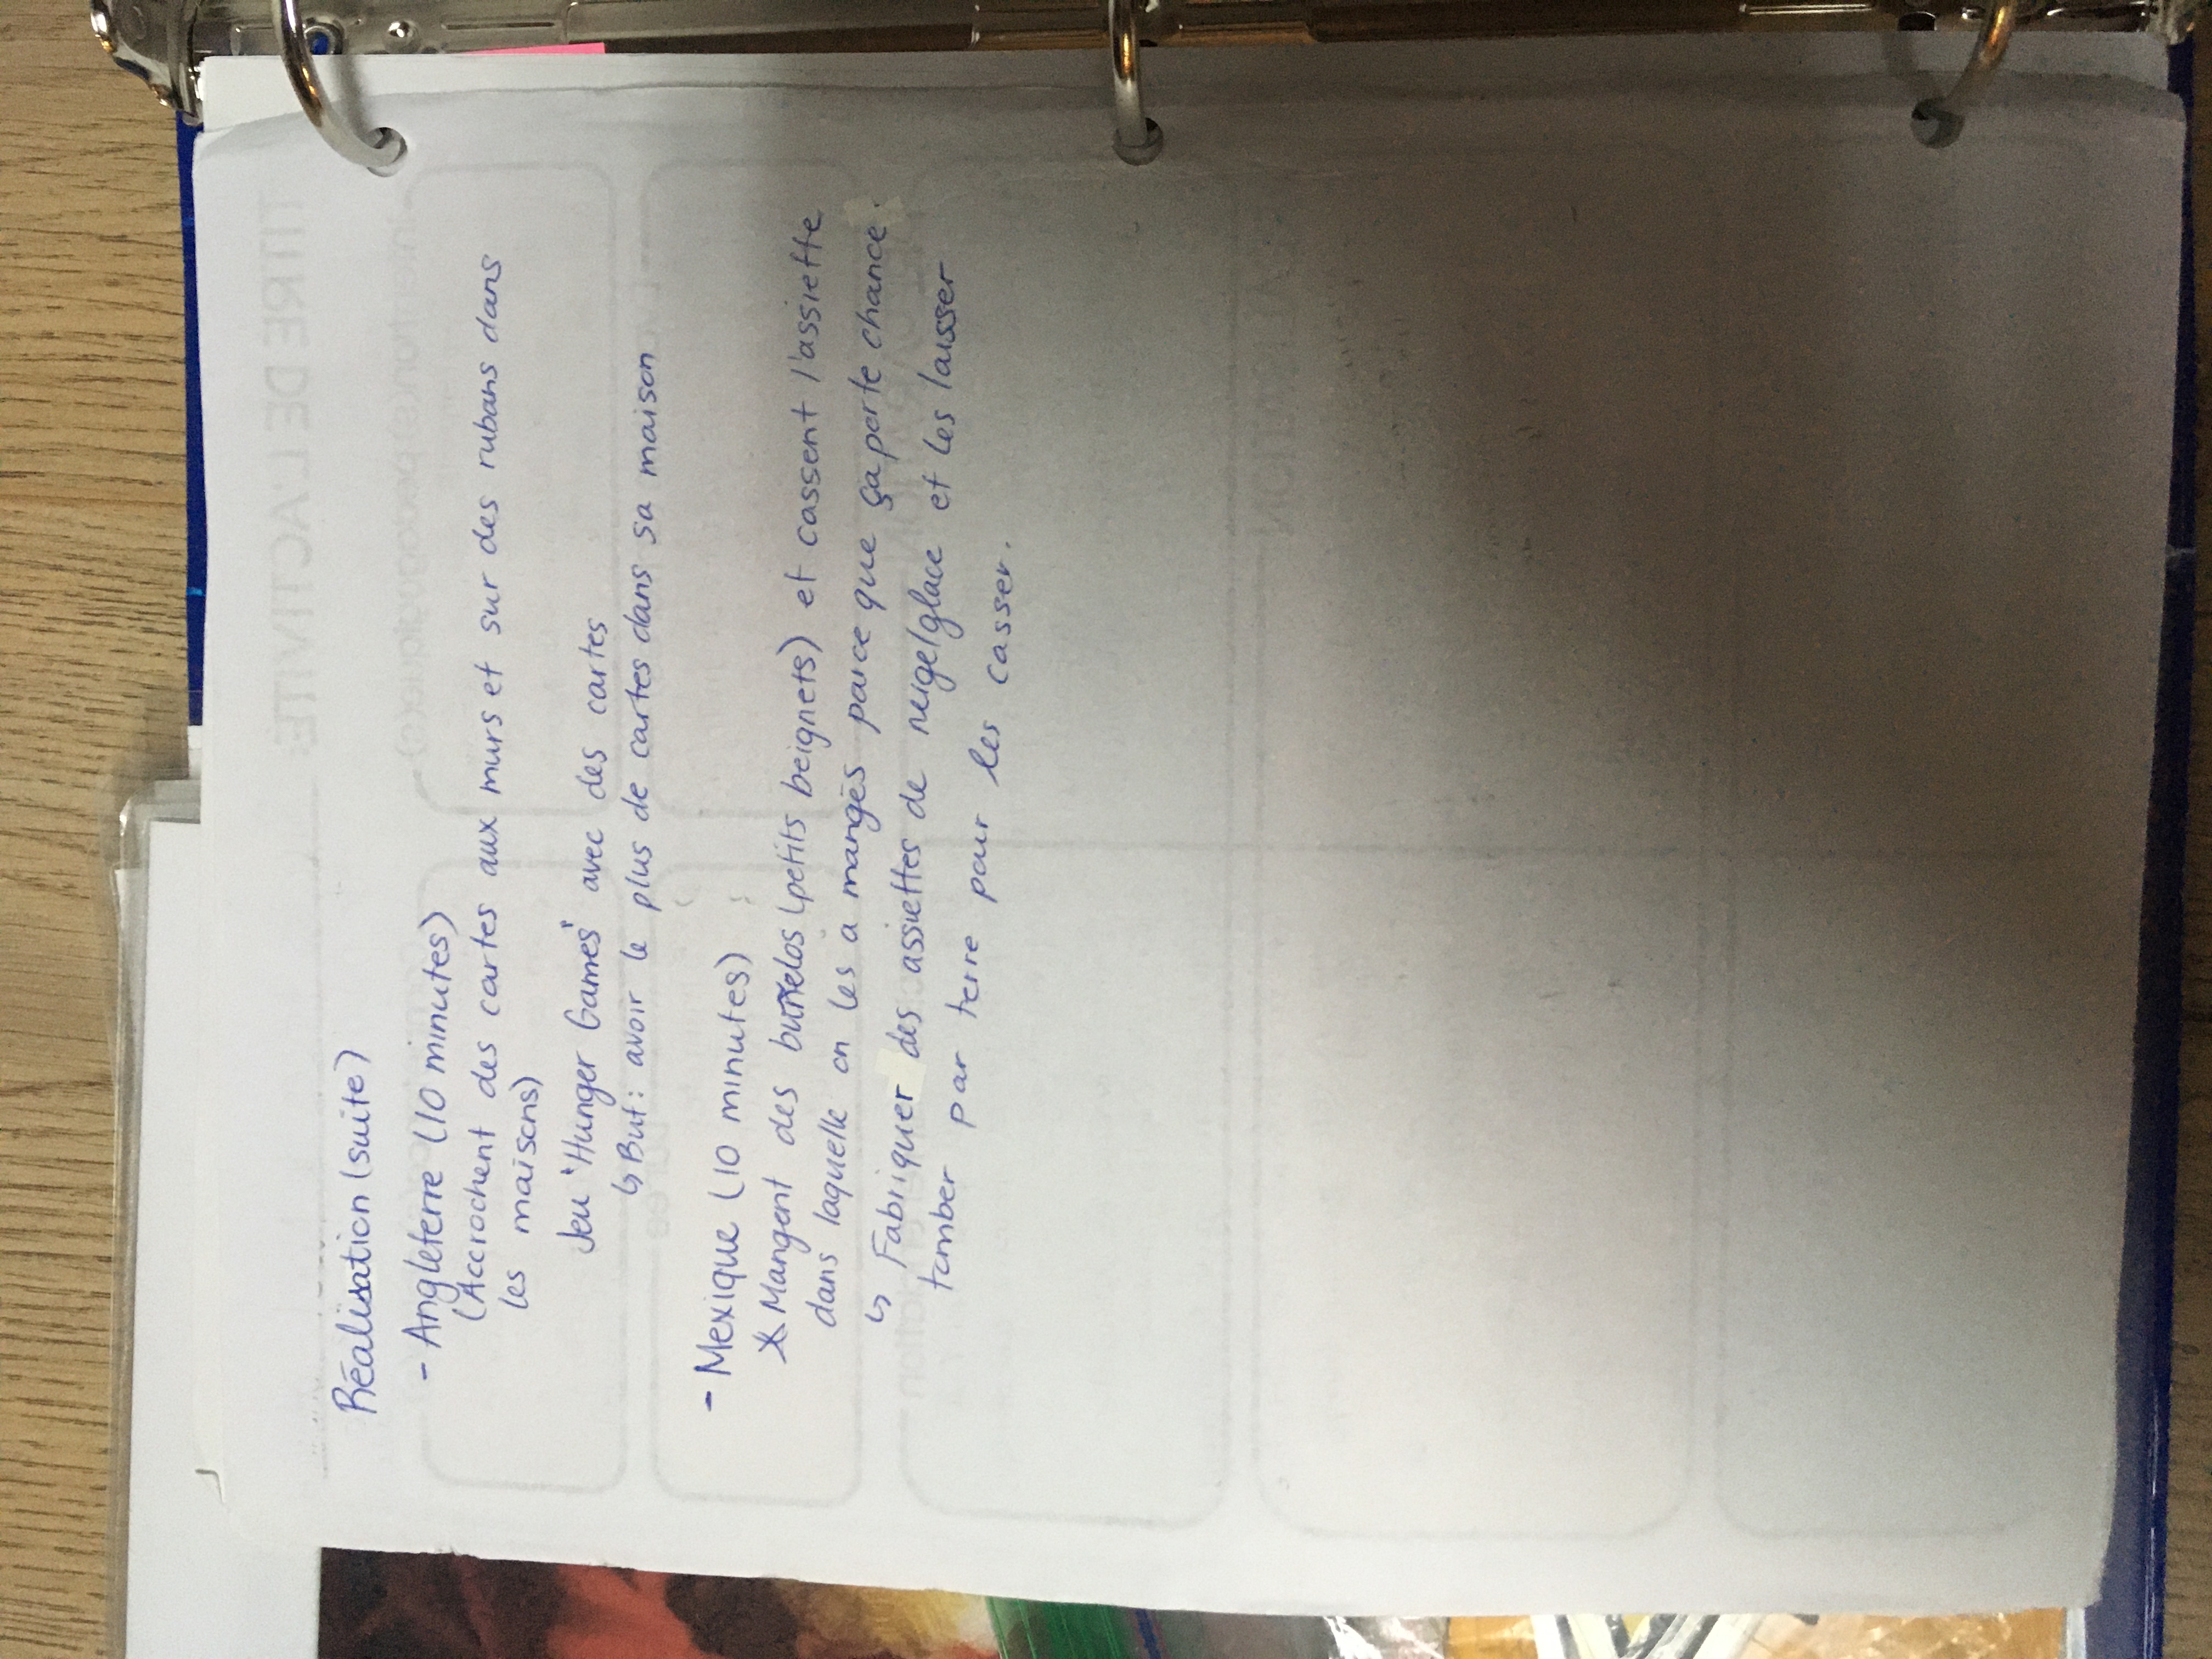 Réalisation (suite)
- Angleterre (10 minutes)
(Accrochent des cartes aux murs et sur des rubans dans
les maisons)
Jeu "Hunger Games" avec des cartes
↳ But : avoir le plus de cartes dans sa maison
- Mexique (10 minutes)
* Mangent des buñelos (petits beignets) et cassent l'assiette
dans laquelle on les a mangés parce que ça porte chance.
↳ Fabriquer des assiettes de neige/glace et les laisser
tomber par terre pour les casser.
TITRE DE L'ACTIVITÉ